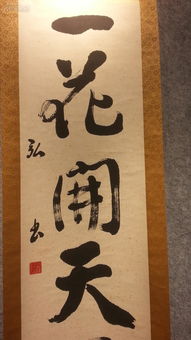 一花開天
弘書